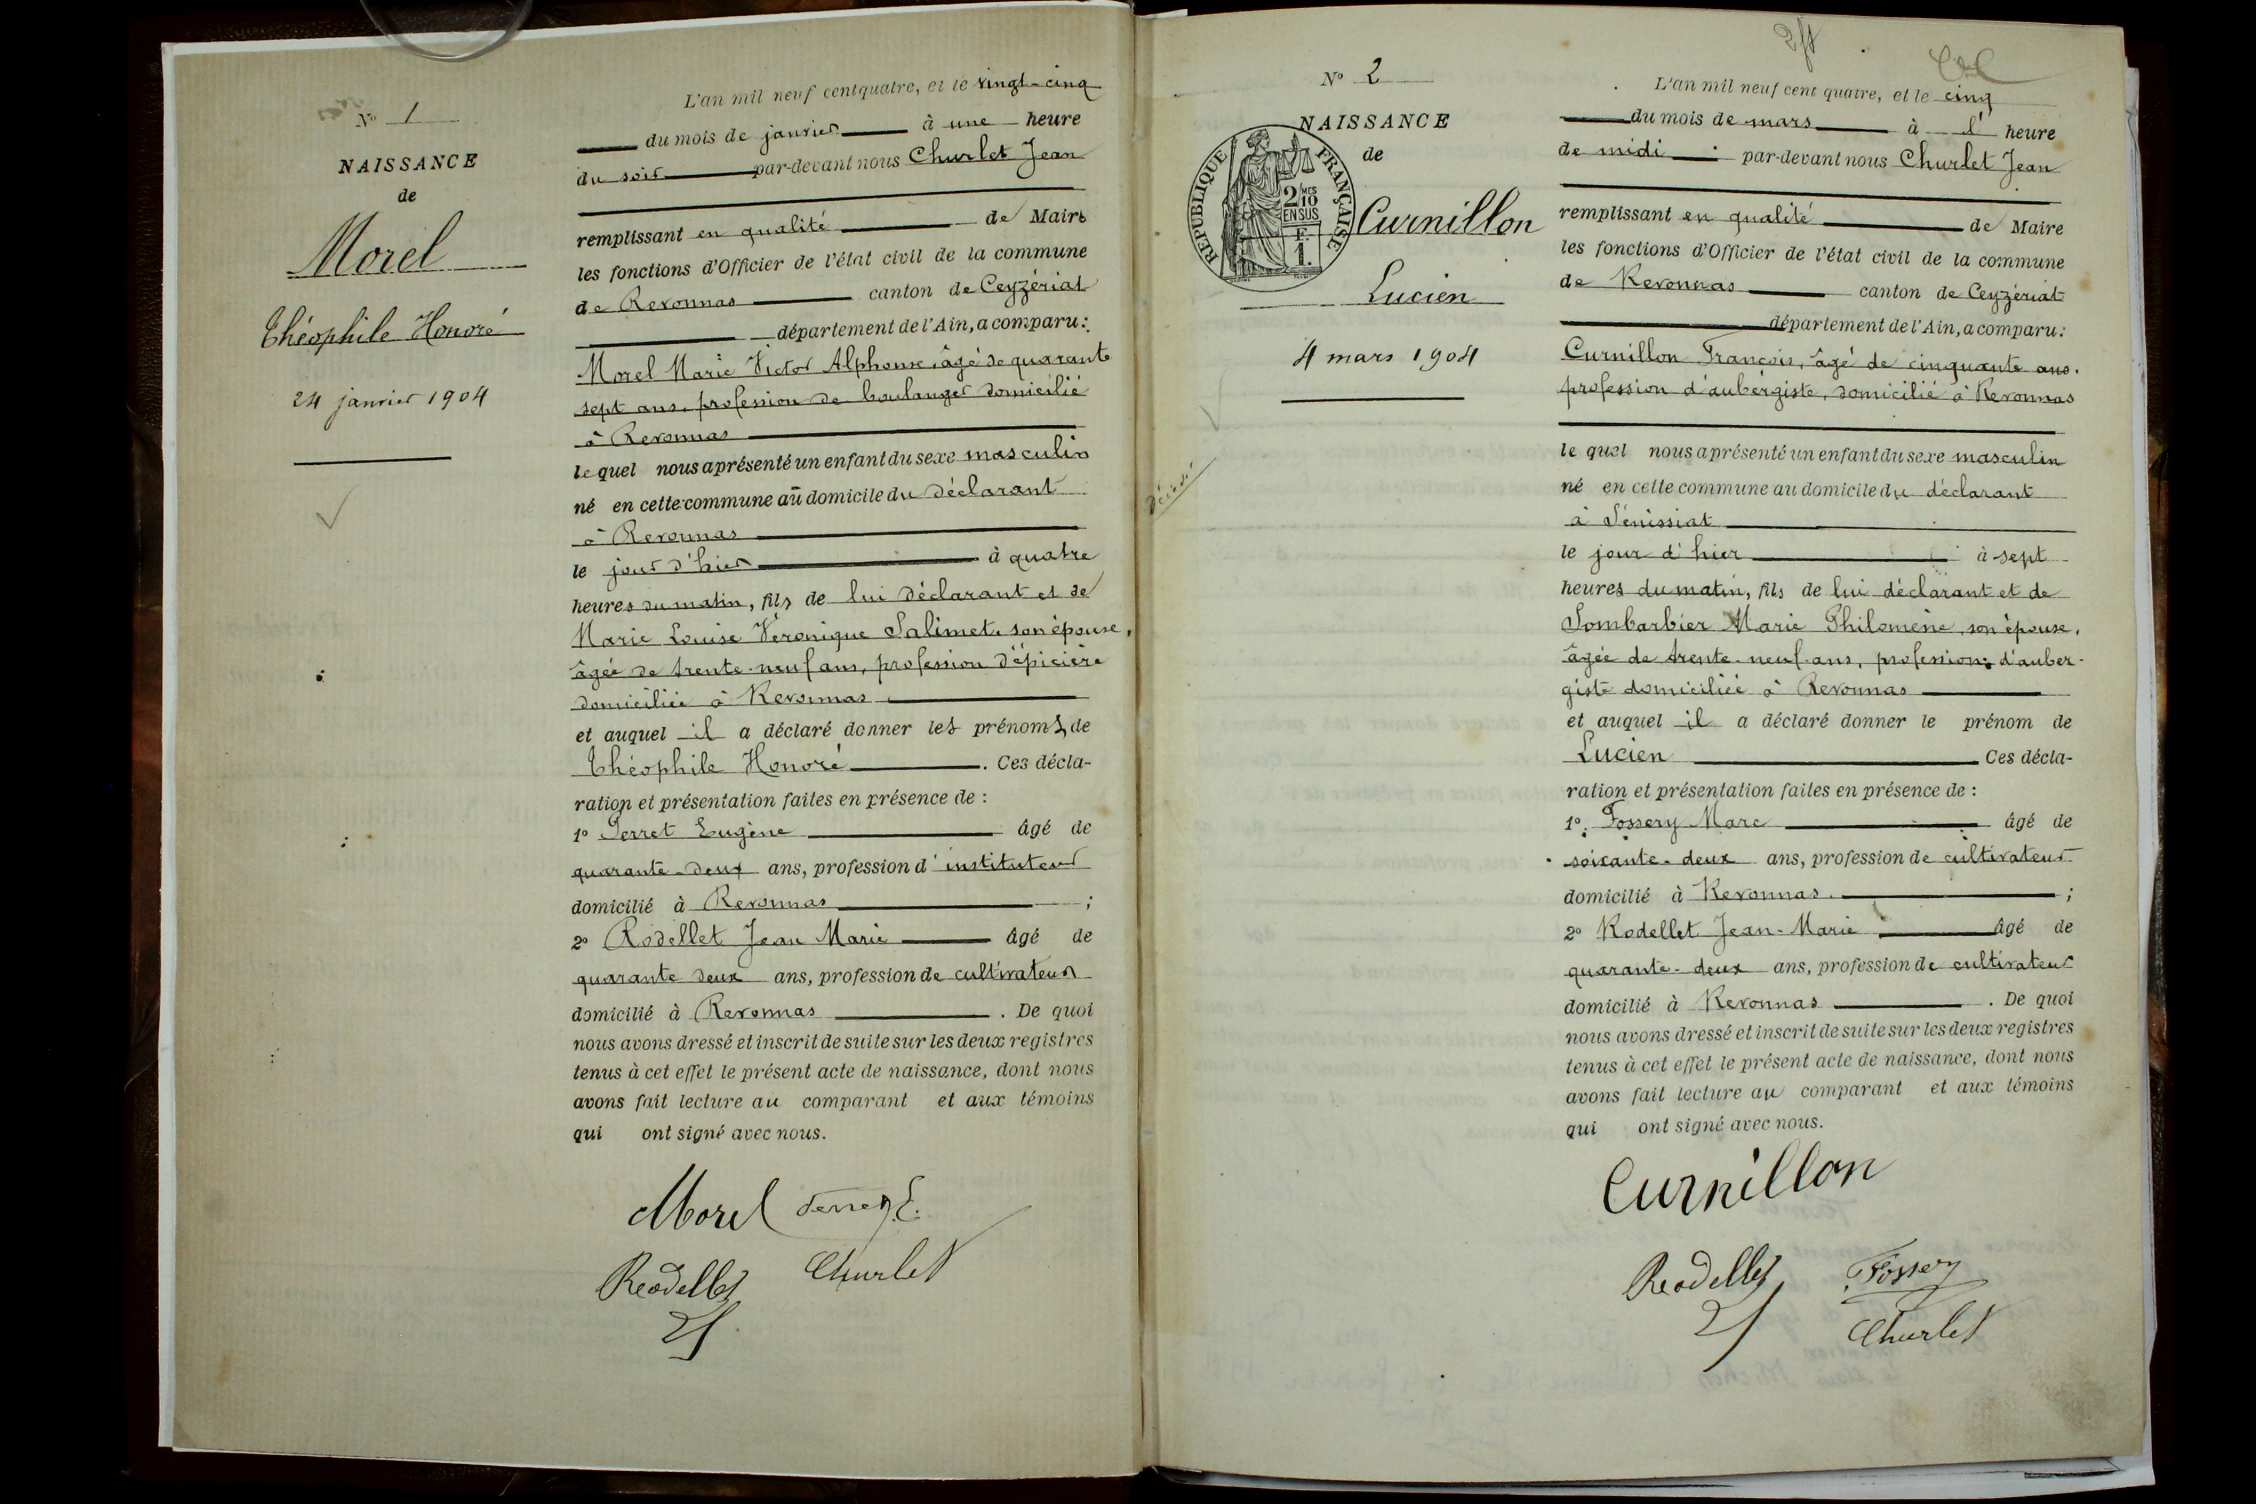 Nº 1
NAISSANCE
de
Morel
Théophile Honoré
24 janvier 1904
L'an mil neuf cent quatre, et le vingt-cinq
du mois de janvier à une heure
du soir par-devant nous Churlet Jean
remplissant en qualité de Maire
les fonctions d'Officier de l'état civil de la commune
de Revonnas canton de Ceyzériat
département de l'Ain, a comparu:
Morel Marie Victor Alphonse, âgé de quarante
sept ans, profession de boulanger domicilié
à Revonnas
le quel nous a présenté un enfant du sexe masculin
né en cette commune au domicile du déclarant
à Revonnas
le jour d'hier à quatre
heures du matin, fils de lui déclarant et de
Marie Louise Véronique Salimet, son épouse,
âgée de trente-neuf ans, profession d'épicière
domiciliée à Revonnas
et auquel il a déclaré donner les prénoms de
Théophile Honoré. Ces décla-
ration et présentation faites en présence de :
1º Perret Eugène âgé de
quarante-deux ans, profession d'instituteur
domicilié à Revonnas ;
2º Rodellet Jean Marie âgé de
quarante deux ans, profession de cultivateur
domicilié à Revonnas. De quoi
nous avons dressé et inscrit de suite sur les deux registres
tenus à cet effet le présent acte de naissance, dont nous
avons fait lecture au comparant et aux témoins
qui ont signé avec nous.
Morel Perret E.
Reodellet Churlet
Nº 2
NAISSANCE
de
RÉPUBLIQUE FRANÇAISE
2 MES
10
EN SUS
F.
1.
Curnillon
Lucien
4 mars 1904
Décédé
L'an mil neuf cent quatre, et le cinq
du mois de mars à l' heure
de midi par-devant nous Churlet Jean
remplissant en qualité de Maire
les fonctions d'Officier de l'état civil de la commune
de Revonnas canton de Ceyzériat
département de l'Ain, a comparu:
Curnillon François, âgé de cinquante ans,
profession d'aubergiste, domicilié à Revonnas
le quel nous a présenté un enfant du sexe masculin
né en cette commune au domicile du déclarant
à Sénissiat
le jour d'hier à sept
heures du matin, fils de lui déclarant et de
Pombarbier Marie Philomène, son épouse,
âgée de trente-neuf ans, profession d'auber-
giste domiciliée à Revonnas
et auquel il a déclaré donner le prénom de
Lucien Ces décla-
ration et présentation faites en présence de :
1º Fossery Marc âgé de
soixante-deux ans, profession de cultivateur
domicilié à Revonnas ;
2º Rodellet Jean-Marie âgé de
quarante-deux ans, profession de cultivateur
domicilié à Revonnas. De quoi
nous avons dressé et inscrit de suite sur les deux registres
tenus à cet effet le présent acte de naissance, dont nous
avons fait lecture au comparant et aux témoins
qui ont signé avec nous.
Curnillon
Reodellet Fossery
Churlet